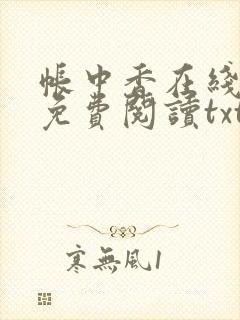 帳中香在綫
免費閱讀txt
寒無風1